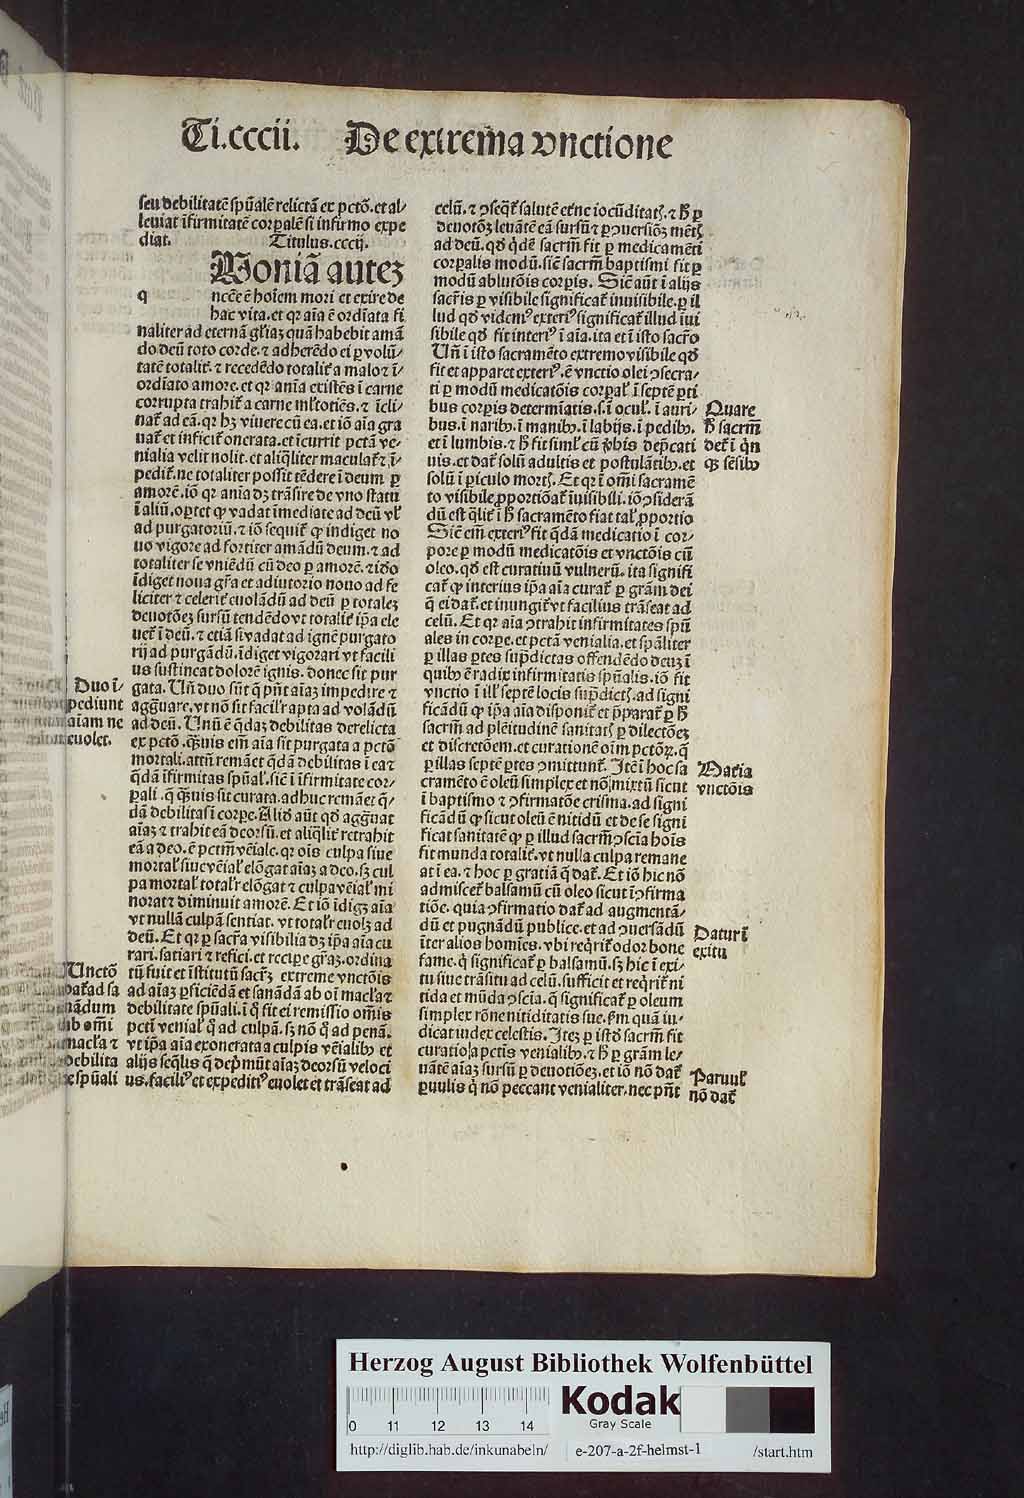 Ti.cccii. De extrema vnctione
seu debilitatē spūalē relictā ex pctō. et al-
leuiat īfirmitatē corpalē si infirmo expe
diat. Titulus.cccij.
Qoniā autez
q ncēe ē hoīem mori et exire de
hac vita. et qꝛ aīa ē ordīata fi
naliter ad eternā gl'iaꝫ quā habebit amā
do deū toto corde. ⁊ adherēdo ei ꝑ volū-
tatē totalit̄. ⁊ recedēdo totalit̄ a malo ⁊ ī-
ordīato amore. et qꝛ anīa existēs ī carne
corrupta trahit̄ a carne ml'totiēs. ⁊ īcli-
nat̄ ad eā. qꝛ hꝫ viuere cū ea. et iō aīa gra
uat̄ et inficit̄ onerata. et īcurrit pctā ve-
nialia velit nolit. et aliqliter maculat̄ ⁊ ī-
pedit̄. ne totaliter possit tēdere ī deum ꝑ
amorē. iō qꝛ anīa dꝫ trāsire de vno statu
ī aliū. oꝑtet ꝙ vadat īmediate ad deū vl'
ad purgatoriū. ⁊ iō sequit̄ ꝙ indiget no
uo vigore ad fortiter amādū deum. ⁊ ad
totaliter se vniēdū cū deo ꝑ amorē. ⁊ iō
īdiget noua gr̄a et adiutorio nouo ad fe
liciter ⁊ celerit̄ euolādū ad deū ꝑ totaleꝫ
deuotōeꝫ sursū tendēdo vt totalit̄ ip̄a ele
uet̄ ī deū. ⁊ etiā si vadat ad ignē purgato
rij ad purgādū. īdiget vigorari vt facili
us sustineat dolorē ignis. donec sit pur
gata. Uñ duo sūt q̄ pñt aīaꝫ impedire ⁊
agg̃uare. vt nō sit facil'r apta ad volādū
ad deū. Unū ē q̄daꝫ debilitas derelicta
ex pctō. qꝫuis em̄ aīa sit purgata a pctō
mortali. attn̄ remāet q̄dā debilitas ī ea ⁊
q̄dā īfirmitas spūal'. sic̄ ī īfirmitate cor-
ꝑali. q̄ qꝫuis sit curata. adhuc remāet q̄-
dā debilitas ī corꝑe. Aliđ aūt qđ agg̃uat
aīaꝫ ⁊ trahit eā deorsū. et aliqlit̄ retrahit
eā a deo. ē pctm̄ vēiale. qꝛ oīs culpa siue
mortal' siue vēial' elōgat aīaꝫ a deo. sꝫ cul
pa mortal' total'r elōgat ⁊ culpa vēial' mi
norat ⁊ diminuit amorē. Et iō īdigꝫ aīa
vt nullā culpā sentiat. vt total'r euolꝫ ad
deū. Et qꝛ ꝑ sacr̄a visibilia dꝫ ip̄a aīa cu
rari. satiari ⁊ refici. et recipe gr̄aꝫ. ordina
tū fuit et īstitutū sacrꝫ extreme vnctōis
ad aīaꝫ ꝑficiēdā et sanādā ab oī macl'a ⁊
debilitate spūali. ī q̄ fit ei remissio om̄is
pcti venial' q̄ ad culpā. sꝫ nō q̄ ad penā.
vt ip̄a aīa exonerata a culpis vēialibꝰ et
alijs seqlis q̄ dep̄mūt aīaꝫ deorsū veloci
us. faciliꝰ et expeditiꝰ euolet et trāseat ad
Duo ī-
pediunt
aīam ne
euolet.
Unctō
dat̄ ad sa
nādum
ab om̄i
macl'a ⁊
debilita
te spūali
celū. ⁊ ꝯseq̄t̄ salutē et̄ne iocūditatꝭ. ⁊ ħ ꝑ
deuotōꝫ leuātē eā sursū ⁊ ꝑ ꝯuersiōꝫ mētꝭ
ad deū. qđ qdē sacrm̄ fit ꝑ medicamēti
corꝑalis modū. sic̄ sacrm̄ baptismi fit ꝑ
modū ablutōis corꝑis. Sic̄ aūt ī alijs
sacr̄is ꝑ visibile significat̄ inuisibile. ꝑ il
lud qđ videmꝰ exteriꝰ significat̄ illud īui
sibile qđ fit interiꝰ ī aīa. ita et ī isto sacr̄o
Uñ ī isto sacramēto extremo visibile qđ
fit et apparet exteriꝰ. ē vnctio olei ꝯsecra-
ti ꝑ modū medicatōis corꝑal' ī septē ꝑti
bus corꝑis determīatis. s. ī ocul'. ī auri-
bus. ī naribꝰ. ī manibꝰ. ī labijs. ī pedibꝰ.
et ī lumbis. ⁊ ħ fit siml' cū ꝟbis dep̄cati
uis. et dat̄ solū adultis et postulātibꝰ. et
solū ī ꝑiculo mortꝭ. Et qꝛ ī om̄i sacramē
to visibile ꝓportiōat̄ īuisibili. iō ꝯsiderā
dū est qlit̄ ī ħ sacramēto fiat tal' ꝓportio
Sic̄ em̄ exteriꝰ fit q̄dā medicatio ī cor-
pore ꝑ modū medicatōis et vnctōis cū
oleo. qđ est curatiuū vulnerū. ita signifi
cat̄ ꝙ interius ip̄a aīa curat̄ ꝑ gr̄am dei
q̄ ei dat̄. et inungit̄ vt facilius trāseat ad
celū. Et qꝛ aīa ꝯtrahit infirmitates spū
ales in corꝑe. et pctā venialia. et spāliter
ꝑ illas ꝑtes sup̄dictas offendēdo deuꝫ ī
quibꝰ ē radix infirmitatis spūalis. iō fit
vnctio ī ill' septē locis sup̄dictꝭ. ad signi
ficādū ꝙ ip̄a aīa disponit̄ et p̄parat̄ ꝑ ħ
sacrm̄ ad pleitudinē sanitatꝭ ꝑ dilectōeꝫ
et discretōem. et curationē oīm pctōꝝ. q̄
ꝑ illas septē ꝑtes ꝯmittunt̄. Itē ī hoc sa
cramēto ē oleū simplex et nō mixtū sicut
ī baptismo ⁊ ꝯfirmatōe crisma. ad signi
ficādū ꝙ sicut oleū ē nitidū et de se signi
ficat sanitatē ꝙ ꝑ illud sacrm̄ ꝯsciā hoīs
fit munda totalit̄. vt nulla culpa remane
at ī ea. ⁊ hoc ꝑ gratiā q̄ dat̄. Et iō hic nō
admiscet̄ balsamū cū oleo sicut ī ꝯfirma
tiōe. quia ꝯfirmatio dat̄ ad augmentā-
dū et pugnādū publice. et ad ꝯuersādū
īter alios homīes. vbi reqrit̄ odor bone
fame. q̄ significat̄ ꝑ balsamū. sꝫ hic ī exi-
tu siue trāsitu ad celū. sufficit et reqrit̄ ni
tida et mūda ꝯsciā. q̄ significat̄ ꝑ oleum
simplex rōne nitiditatis sue. ẜm quā iu-
dicat iudex celestis. Iteꝫ ꝑ istđ sacrm̄ fit
curatio a pctīs venialibꝰ. ⁊ ħ ꝑ gr̄am le-
uātē aīaꝫ sursū ꝑ deuotiōeꝫ. et iō nō dat̄
ꝑuulis q̄ nō peccant venialiter. nec pñt
Quare
ħ sacrm̄
det̄ ī q̄n
qꝫ sēsibꝰ
Mat̄ia
vnctōis
Datur ī
exitu
Paruul'
nō dat̄
Herzog August Bibliothek Wolfenbüttel
0 11 12 13 14
Kodak
Gray Scale
http://diglib.hab.de/inkunabeln/ e-207-a-2f-helmst-1 /start.htm